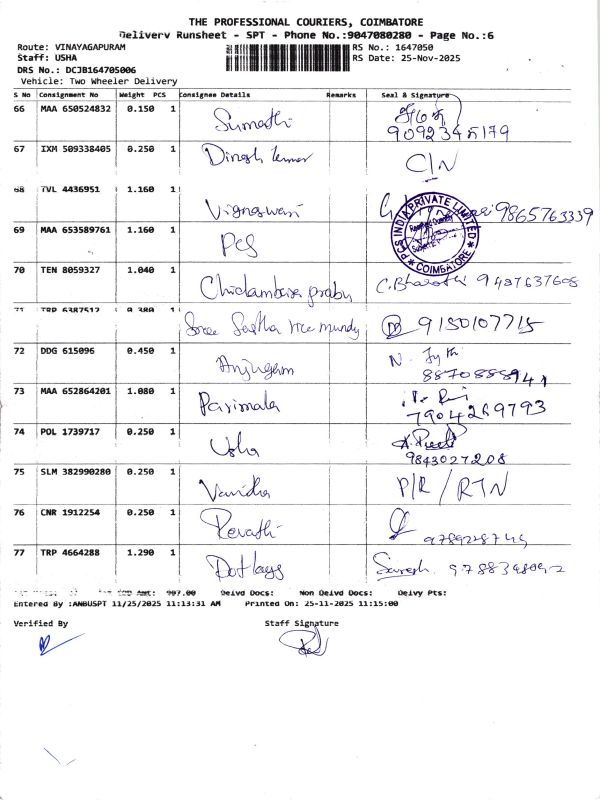 THE PROFESSIONAL COURIERS, COIMBATORE
Delivery Runsheet - SPT - Phone No.:9047080280 - Page No.:6
Route: VINAYAGAPURAM RS No.: 1647050
Staff: USHA RS Date: 25-Nov-2025
DRS No.: DCJB164705006
Vehicle: Two Wheeler Delivery
S No Consignment No Weight PCS Consignee Details Remarks Seal & Signature
66 MAA 650524832 0.150 1 Sumathi
9092345179
67 IXM 509338405 0.250 1 Dinesh Kumar C/N
68 TVL 4436951 1.160 1 Vigneswari 9865763339
PCS INDIA PRIVATE LIMITED
* COIMBATORE *
69 MAA 653589761 1.160 1 PCS
70 TEN 8059327 1.040 1 Chidambara prabu C. Bharathi 9487637608
71 TRP 6387512 0.380 1 Sree Sastha rice mundy 9150107715
72 DDG 615096 0.450 1 Anjugam N.
8870888941
73 MAA 652864201 1.080 1 Parimala
7904269793
74 POL 1739717 0.250 1 Usha
9843027208
75 SLM 382990280 0.250 1 Vanitha P/R / RTN
76 CNR 1912254 0.250 1 Revathi
77 TRP 4664288 1.290 1 Dotlays Suresh.
COD Amt: 997.00 Delvd Docs: Non Delvd Docs: Delvy Pts:
Entered By :ANBUSPT 11/25/2025 11:13:31 AM Printed On: 25-11-2025 11:15:00
Verified By Staff Signature